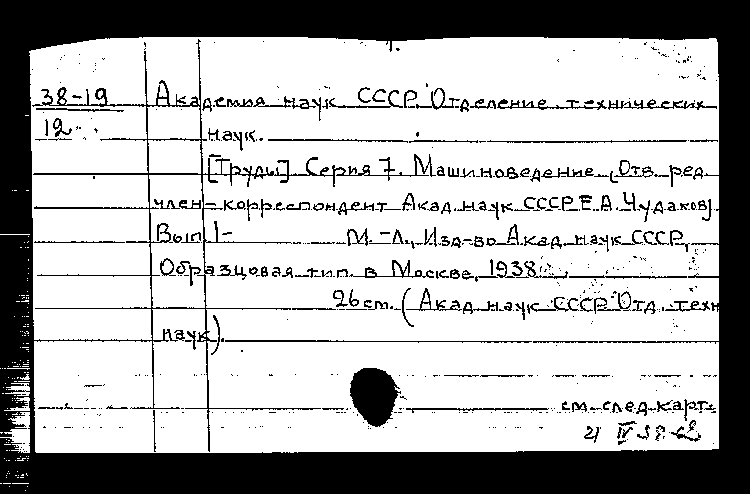 38-19 Академия наук СССР. Отделение технических
12 наук.
[Труды]. Серия 7. Машиноведение. (Отв. ред.
член-корреспондент Акад. наук СССР Е.А. Чудаков).
Вып. 1- М.-Л., Изд-во Акад. наук СССР,
Образцовая тип. в Москве, 1938
26 см. (Акад. наук СССР. Отд. техн
наук).
см. след. карт.
21 IV